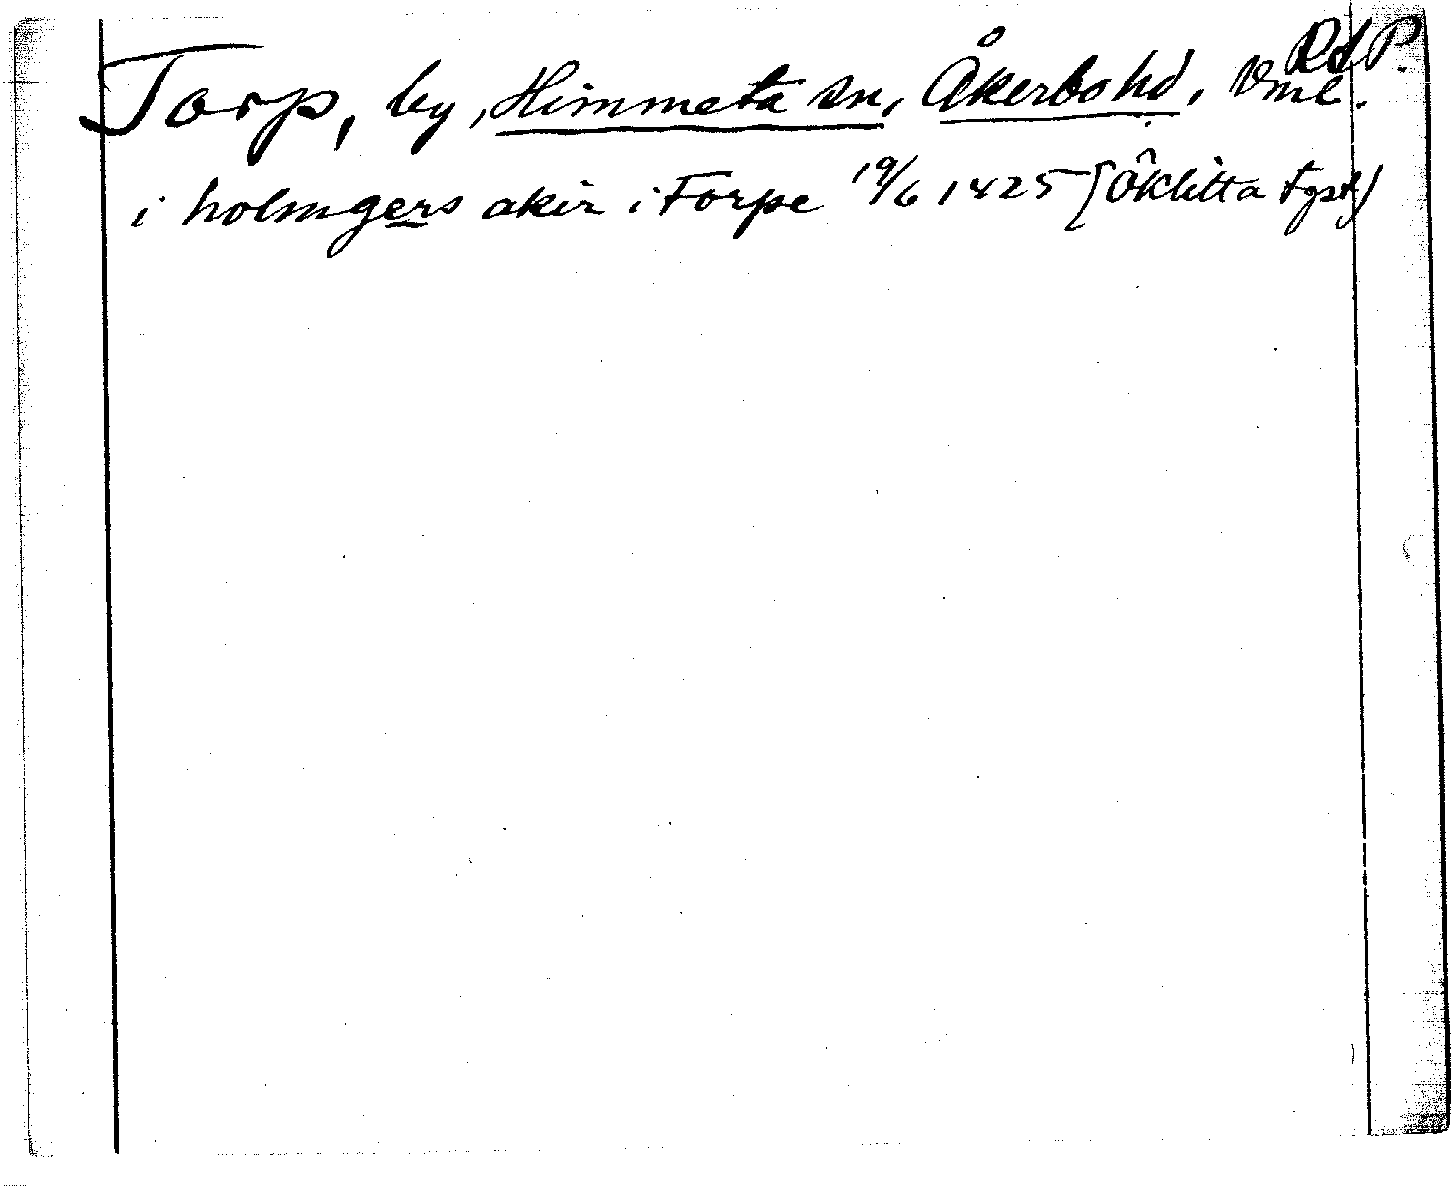 RAP.
Torp, by, Himmeta sn, Åkerbo hd, Vml.
i holmgers akir i Torpe 19/6 1425 (Öklitta Fgst)